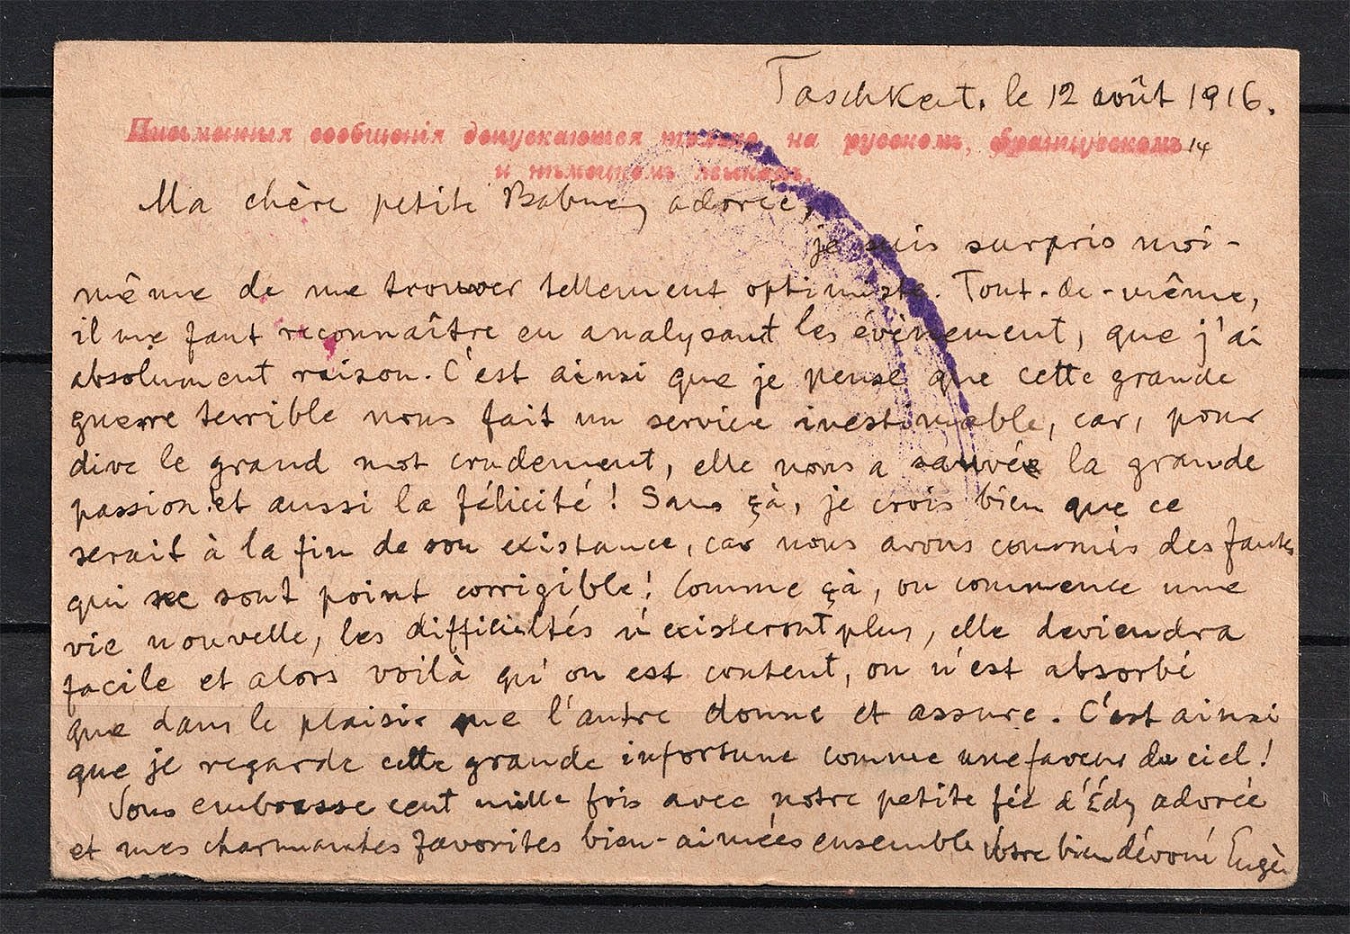 Taschkent, le 12 août 1916.
Письменныя сообщенія допускаются только на русскомъ, французскомъ 14
и нѣмецкомъ языкахъ.
Ma chère petite adorée,
je suis surpris moi-
même de me trouver tellement optimiste. Tout-de-même,
il me faut reconnaître en analysant les évènement, que j'ai
absolument raison. C'est ainsi que je pense que cette grande
guerre terrible nous fait un service inestimable, car, pour
dire le grand mot crudement, elle nous a sauvée la grande
passion et aussi la félicité! Sans çà, je crois bien que ce
serait à la fin de son existance, car nous avons commis des fautes
qui ne sont point corrigible! Comme çà, on commence une
vie nouvelle, les difficultés n'existeront plus, elle deviendra
facile et alors voilà qu'on est content, on n'est absorbé
que dans le plaisir que l'autre donne et assure. C'est ainsi
que je regarde cette grande infortune comme une faveur du ciel!
Vous embrasse cent mille fois avec notre petite fée d'Édy adorée
et mes charmantes favorites bien-aimées ensemble Votre bien dévoué Eugèn